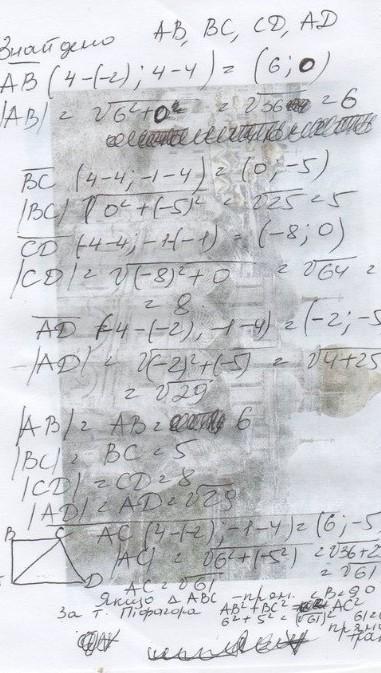 Знайдемо AB, BC, CD, AD
AB (4-(-2); 4-4) = (6; 0)
|AB| = √6²+0² = √36 = 6
BC (4-4; -1-4) = (0; -5)
|BC| √0²+(-5)² = √25 = 5
CD (-4-4; -1-(-1) = (-8; 0)
|CD| = √(-8)²+0 = √64 =
= 8
AD (-4-(-2), -1-4) = (-2; -5
|AD| = √(-2)²+(-5) = √4+25
= √29
|AB| = AB = 6
|BC| = BC = 5
|CD| = CD = 8
|AD| = AD = √29
B C AC (4-(-2), -1-4) = (6; -5
|AC| = √6²+(-5²) = √36+2
= √61
D AC = √61
Якщо Δ ABC - прям. ∠B=90
За т. Піфагора AB²+BC² = AC²
6²+5² = (√61)² 61=